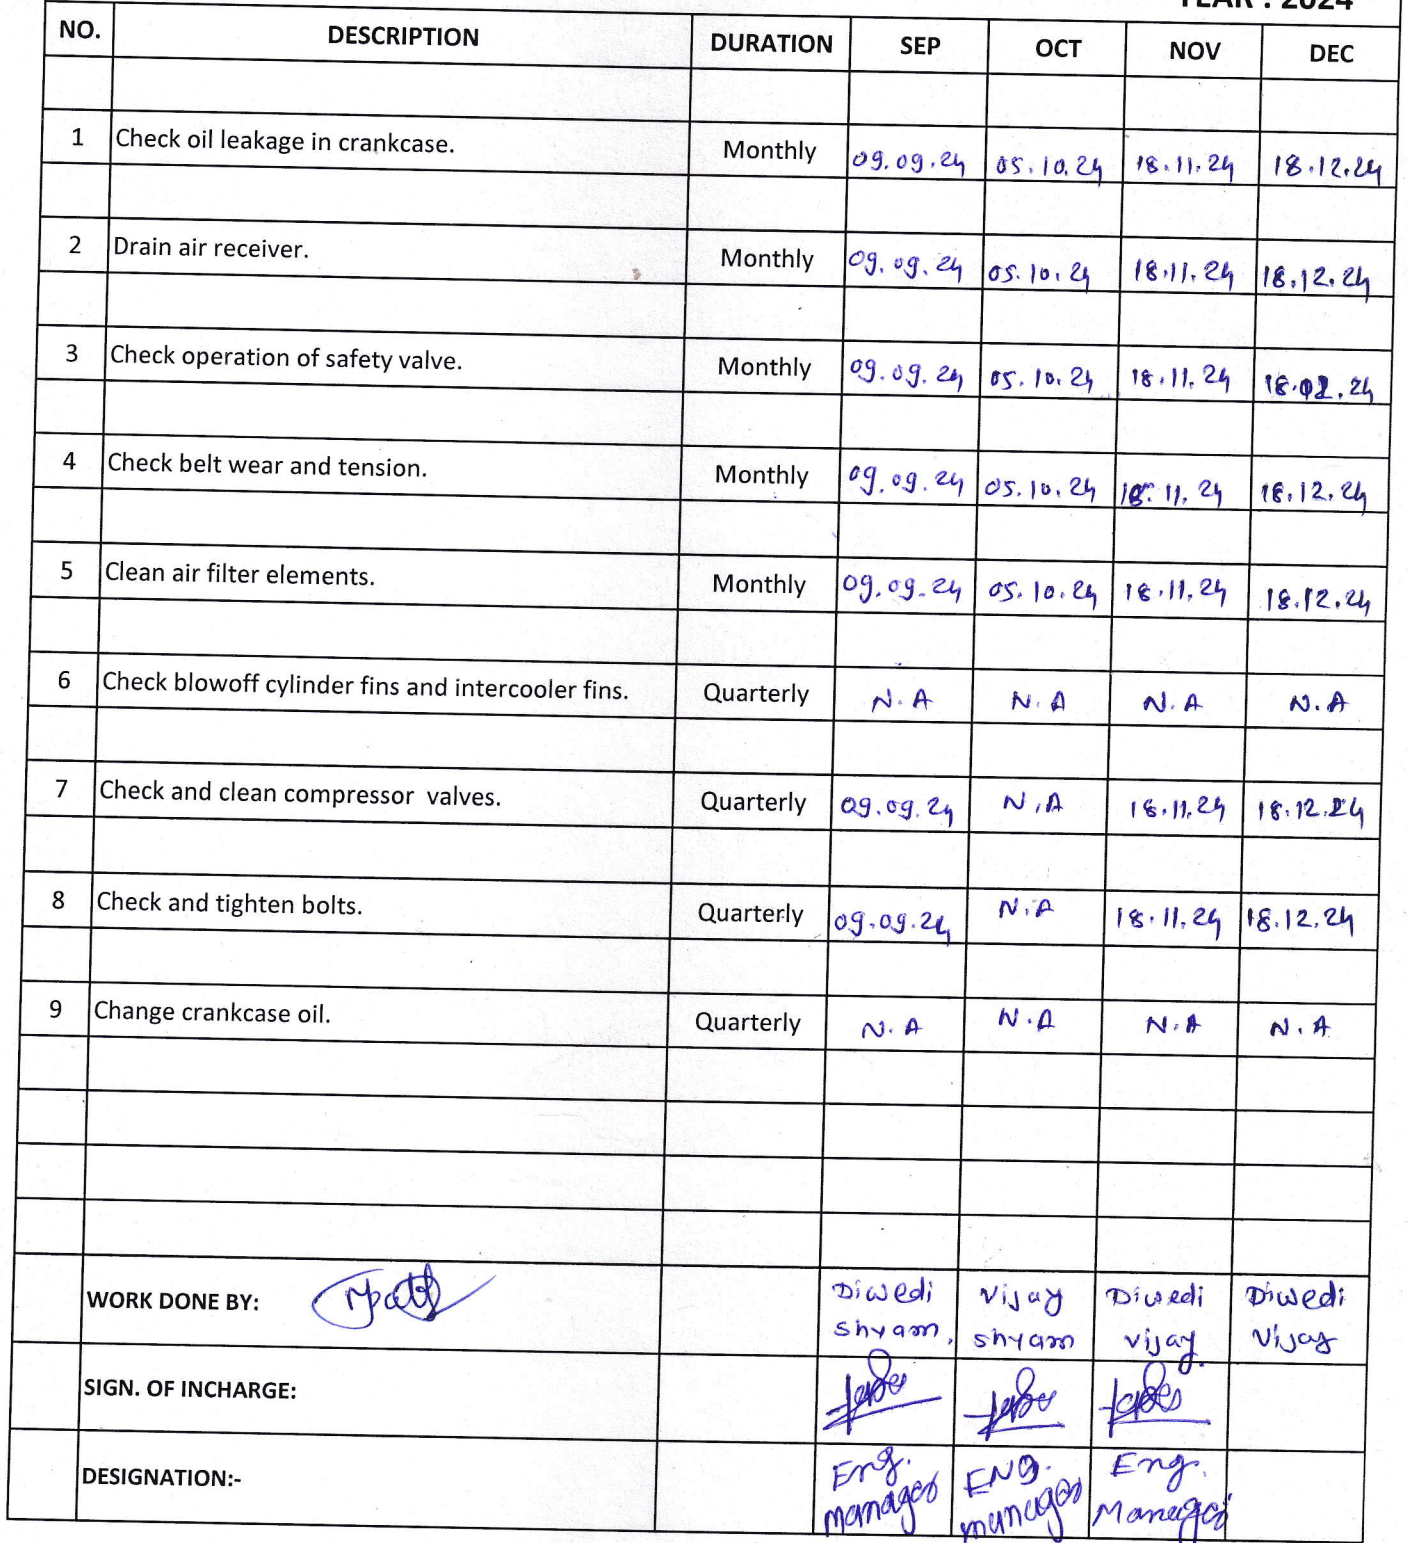 YEAR : 2024
NO. DESCRIPTION DURATION SEP OCT NOV DEC
1 Check oil leakage in crankcase. Monthly 09.09.24 05.10.24 18.11.24 18.12.24
2 Drain air receiver. Monthly 09.09.24 05.10.24 18.11.24 18.12.24
3 Check operation of safety valve. Monthly 09.09.24 05.10.24 18.11.24
4 Check belt wear and tension. Monthly 09.09.24 05.10.24 18.11.24 18.12.24
5 Clean air filter elements. Monthly 09.09.24 05.10.24 18.11.24 18.12.24
6 Check blowoff cylinder fins and intercooler fins. Quarterly N.A N.A N.A N.A
7 Check and clean compressor valves. Quarterly 09.09.24 N.A 18.11.24 18.12.24
8 Check and tighten bolts. Quarterly 09.09.24 N.A 18.11.24 18.12.24
9 Change crankcase oil. Quarterly N.A N.A N.A N.A
WORK DONE BY: Diwedi Vijay Diwedi Diwedi
Shyam. Shyam Vijay. Vijay
SIGN. OF INCHARGE:
DESIGNATION:- Eng. ENG. Eng.
manager manager Manager